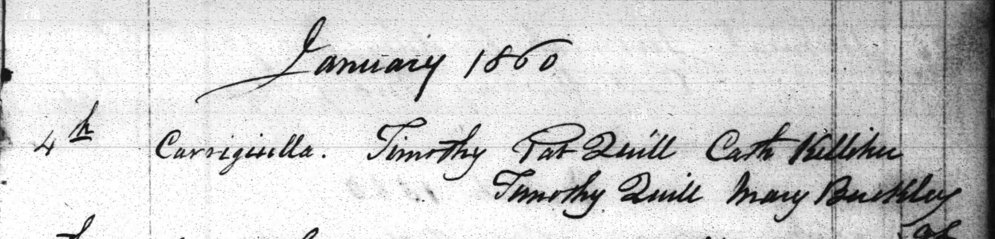 January 1860
4th Carriginilla. Timothy Pat Quill Cath Kelliher
Timothy Quill Mary Buckley